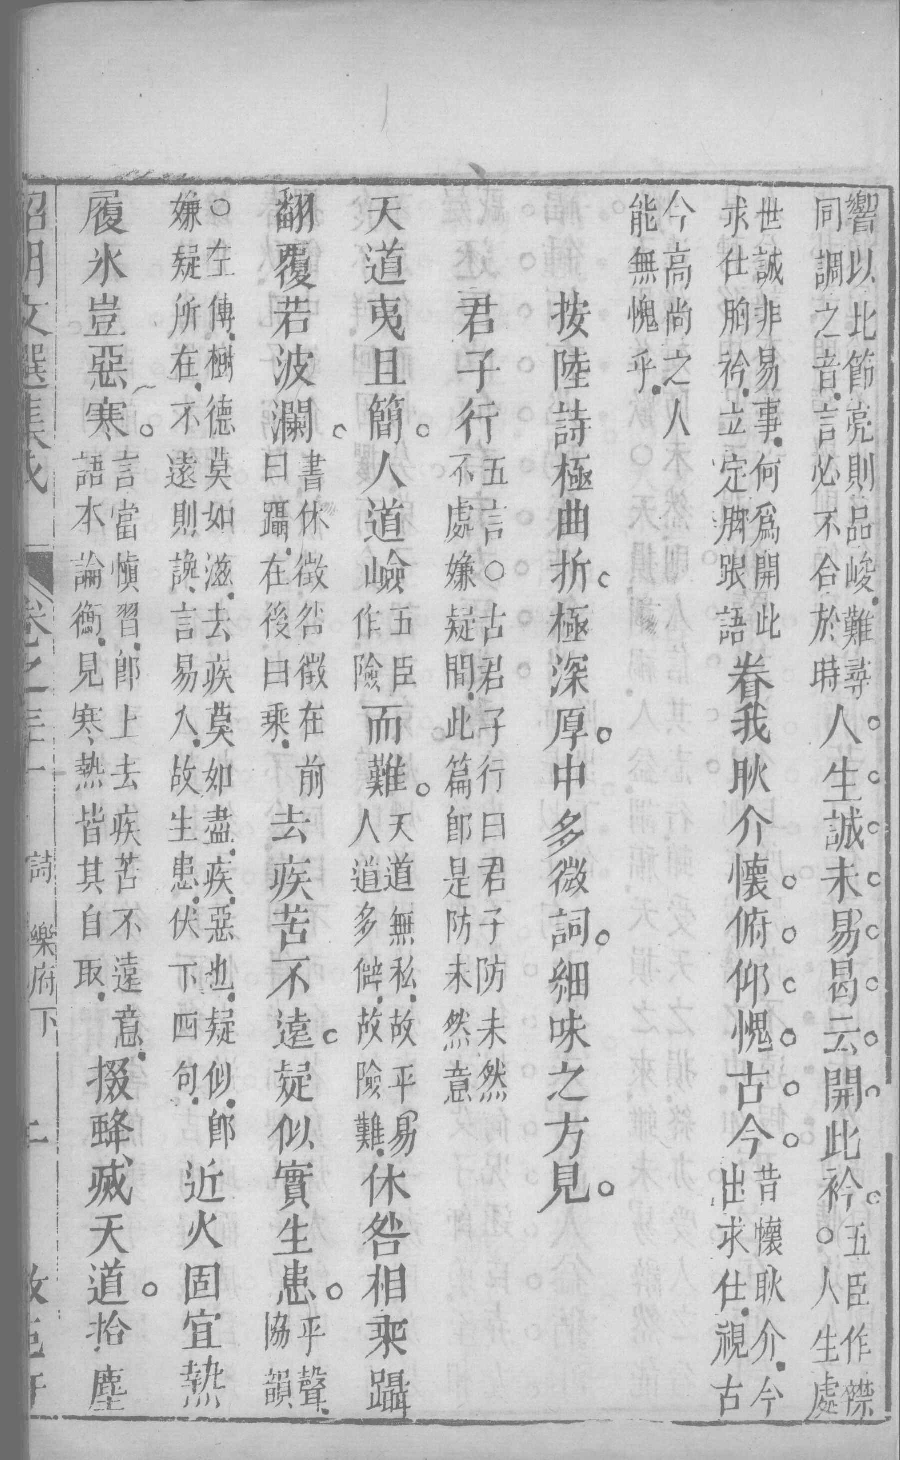 響以比節亮則品峻難尋
同調之音言必不合於時人生誠未易曷云開此衿五臣作襟
○人生處
世誠非易事何爲開此
求仕胸衿立定脚跟語眷我耿介懷俯仰愧古今昔懷耿介今
出求仕視古
今高尚之人
能無愧乎
按陸詩極曲折極深厚中多微詞細味之方見
君子行五言○古君子行曰君子防未然
不處嫌疑間此篇卽是防未然意
天道夷且簡人道嶮五臣
作險而難天道無私故平易
人道多僻故險難休咎相乘躡
翻覆若波瀾書休徵咎徵在前
曰躡在後曰乘去疾苦不遠疑似實生患平聲
協韻
○左傳樹德莫如滋去疾莫如盡疾惡也疑似卽
嫌疑所在不遠則讒言易入故生患伏下四句近火固宜熱
履氷豈惡寒言當愼習卽上去疾苦不遠意
語本論衡見寒熱皆其自取掇蜂滅天道拾塵
昭明文選集成 卷之三十一 詩 樂府下